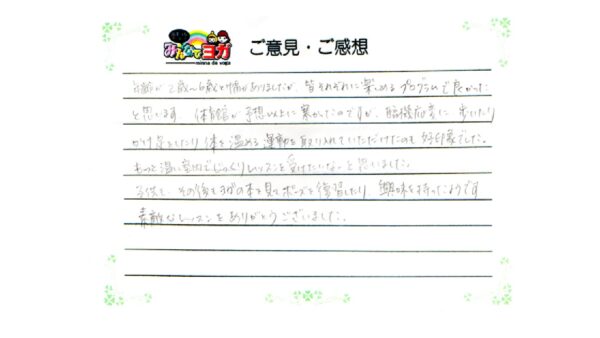 みんなでヨガ
minna de yoga
ご意見・ご感想
年齢が2歳〜6歳と幅がありましたが、皆それぞれに楽しめるプログラムで良かった
と思います。体育館が予想以上に寒かったのですが、臨機応変に歩いたり
かけ足したり体を温める運動を取り入れていただけたのも好印象でした。
もっと温い室内でじっくりレッスンを受けたいな。と思いました。
子供も、その後もヨガの本を見てポーズを復習したり、興味を持ったようです
素敵なレッスンをありがとうございました。